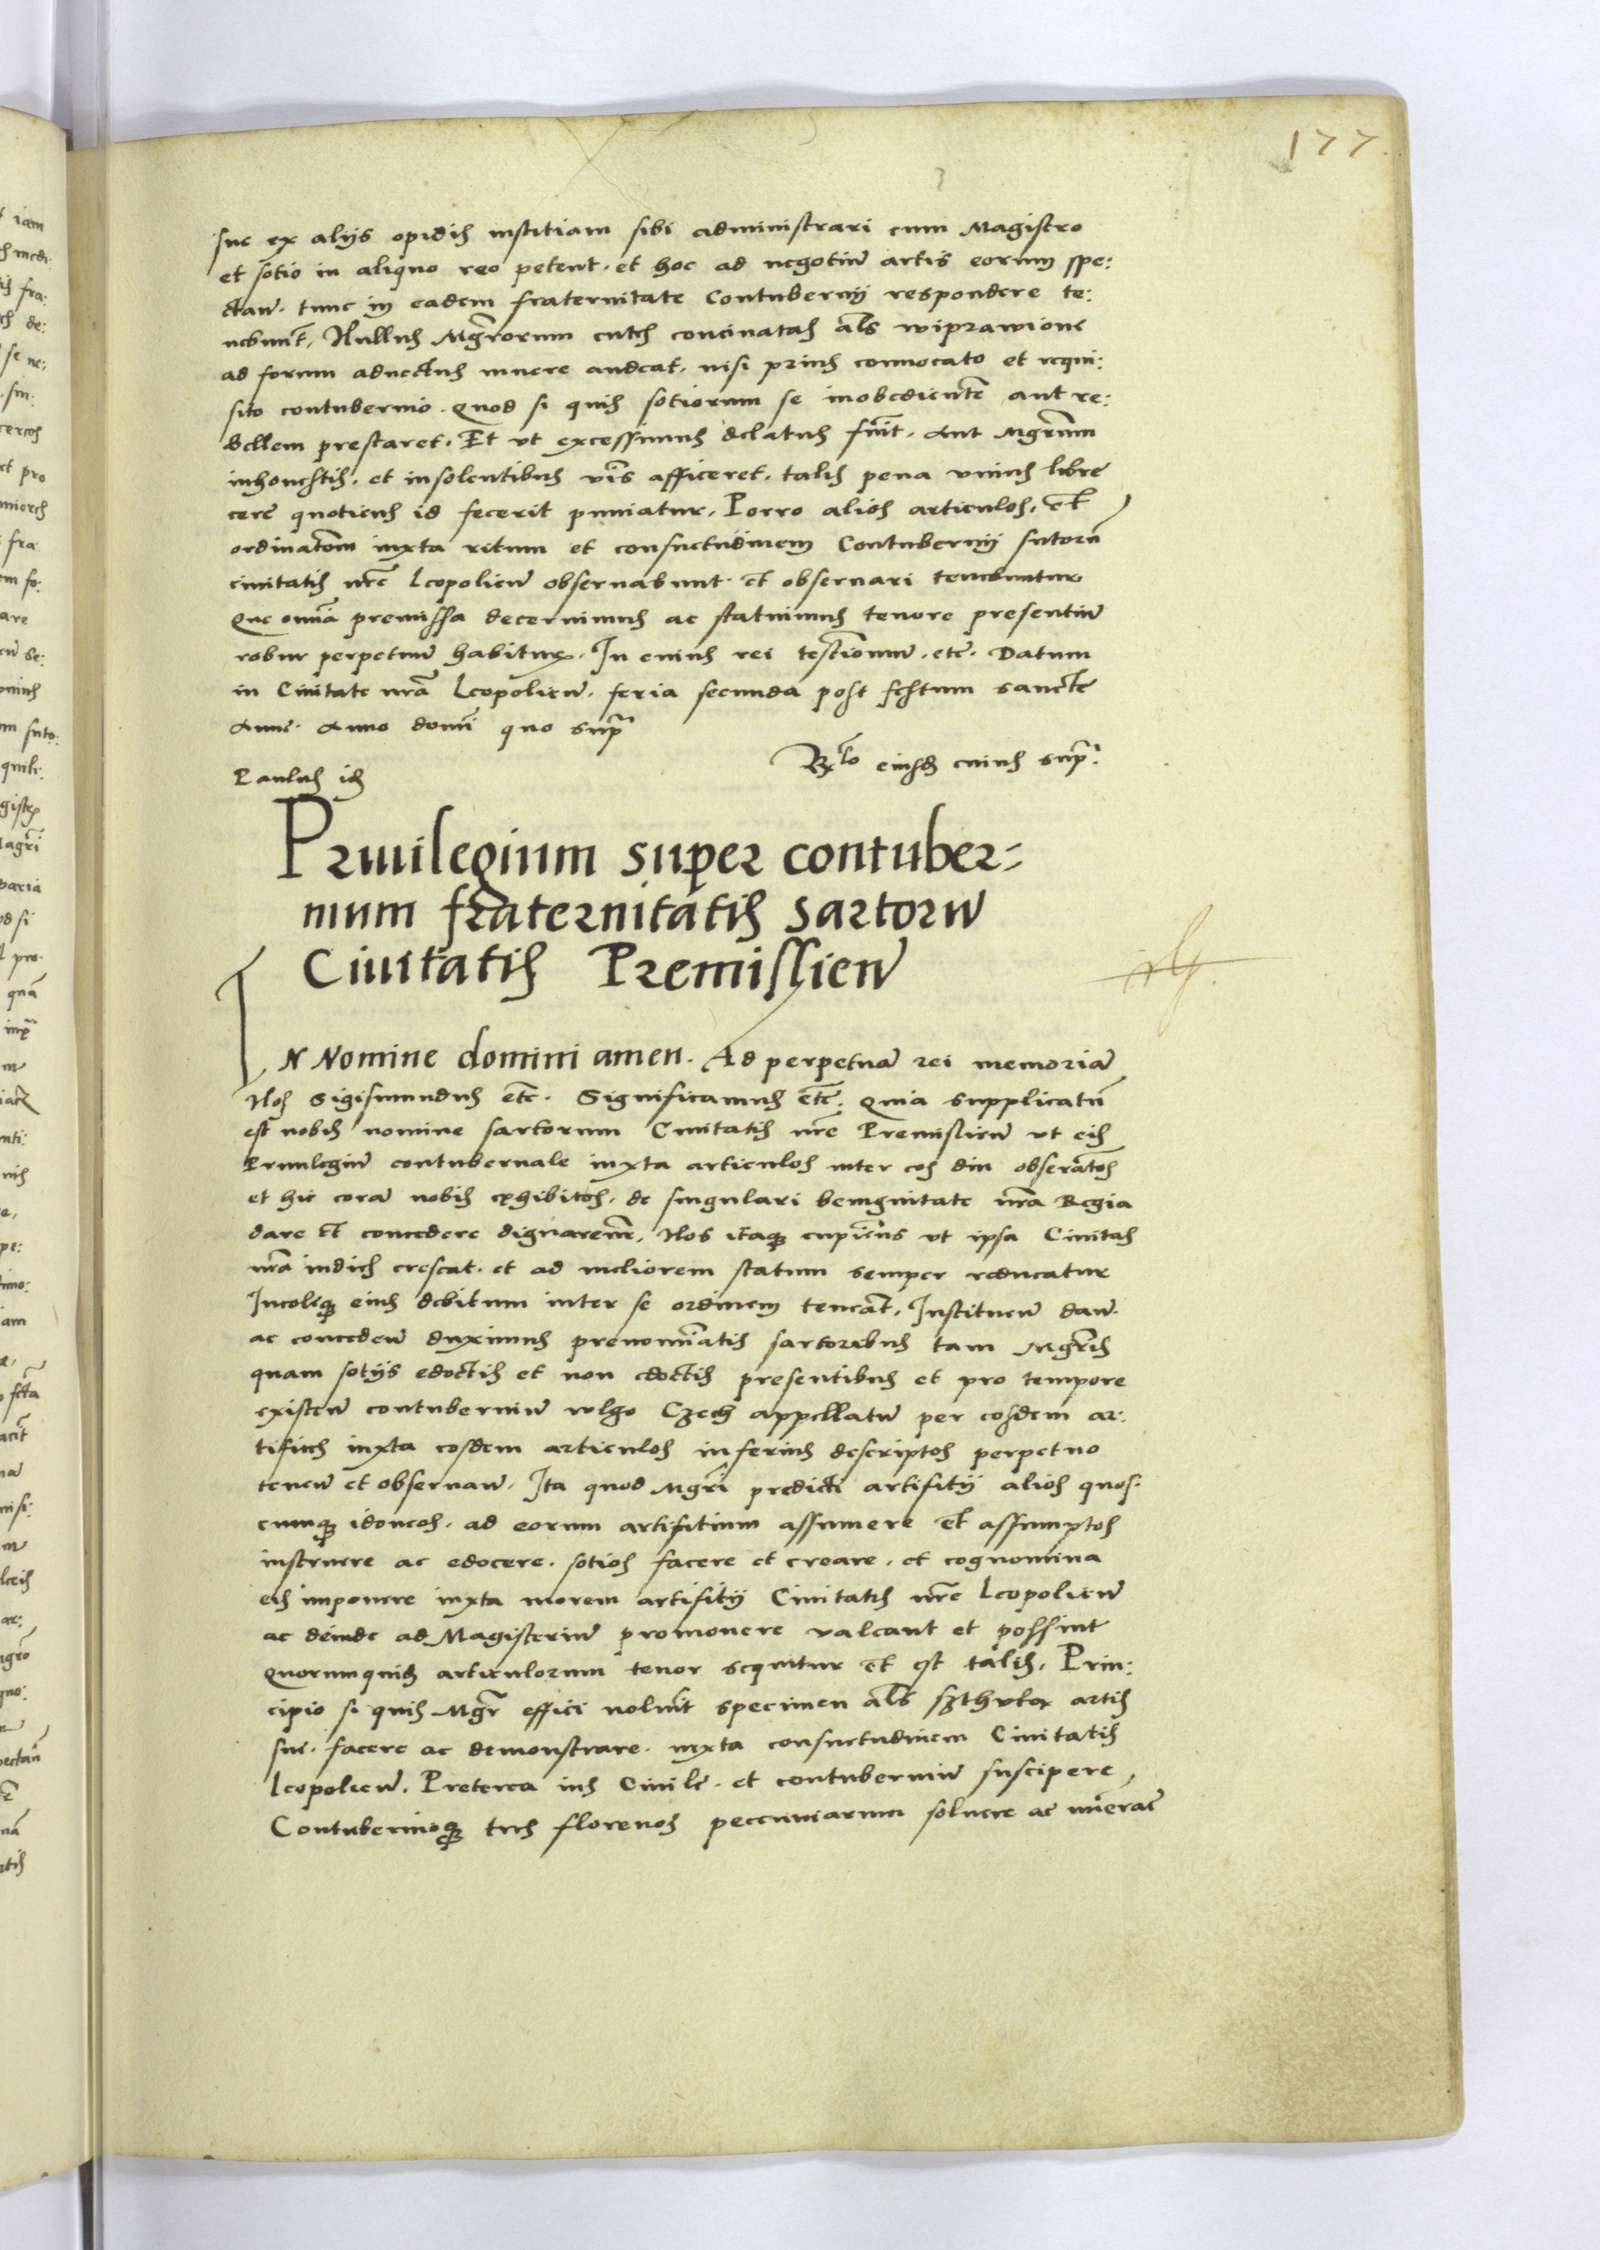 177.
sue ex alijs opidis iustitiam sibi administrari cum Magistro
et sotio in aliquo reo petent. et hoc ad negotiū artis eorum spe:
ctañ. tunc in eadem fraternitate Contubernij respondere te:
nebunt̃. Nullus Mgr̃orum cutes concinatas als̃ wiprawione
ad forum aductus muere audeat. nisi prius conuocato et requi:
sito contubernio. Quod si quis sotiorum se inobedientẽ aut re:
bellem prestaret. Et vt excessiuus delatus fũit. aut Mgr̃um
inhonestis. et insolentibus vr̃is afficeret. talis pena vnius libre
cerẽ quotiens id fecerit puniatur. Porro alios articulos. et̃
ordinatoẽm iuxta ritum et consuetudinem Contubernij sutorũ
ciuitatis nr̃e Leopolieñ obseruabunt. et obseruari tenebuntur
Que omnia premissa decernimus ac statuimus tenore presentiũ
robur perpetuũ habitur. In cuius rei testimoniũ. etc̃. Datum
in Ciuitate nr̃a Leopolieñ. feria secunda post festum sancte
Anne. Anno domi quo supr̃
Paulus id
Rlto eiusd̃ cuius supr̃.
Priuilegium super contuber=
nium fraternitatis sartorũ
Ciuitatis Premislieñ
IN Nomine domini amen. Ad perpetuã rei memoriã
Nos Sigismundus etc̃. Significamus etc̃. quia supplicatũ
est nobis nomine sartorum Ciuitatis nr̃e Premislieñ vt eis
Priuilegiũ contubernale iuxta articulos inter eos diu obseruatos
et hic corã nobis exhibitos. de singulari benignitate nr̃a Regia
dare et concedere dignaremur. Nos itaque cupiens vt ipsa Ciuitas
nr̃a indies crescat. et ad meliorem statum semper reducatur
Incoleque eius debitum inter se ordinem teneãt. Instituend̃ dañ.
ac concedeñ duximus prenominatis sartoribus tam Mgr̃is
quam sotijs edoctis et non edoctis presentibus et pro tempore
existeñ contuberniũ vulgo Czech appellatũ per eosdem ar:
tifices iuxta eosdem articulos inferius descriptos perpetuo
teneñ et obseruañ. Ita quod Mgr̃i predicti artifitij alios quos:
cumque idoneos. ad eorum artifitium assumere et assumptos
instruere ac edocere. sotios facere et creare. et cognomina
eis imponere iuxta morem artifitij Ciuitatis nr̃e Leopolieñ
ac deinde ad Magisteriũ promouere valeant et possint
Quorumquidẽ articulorum tenor sequitur et est talis. Prin:
cipio si quis Mgr̃ effici voluerit specimen als̃ sthuka artis
sue. facere ac demonstrare. iuxta consuetudinem Ciuitatis
Leopolieñ. Preterea ius Ciuile. et contuberniũ suscipere,
Contubernioque tres florenos peccuniarum soluere ac nũerare